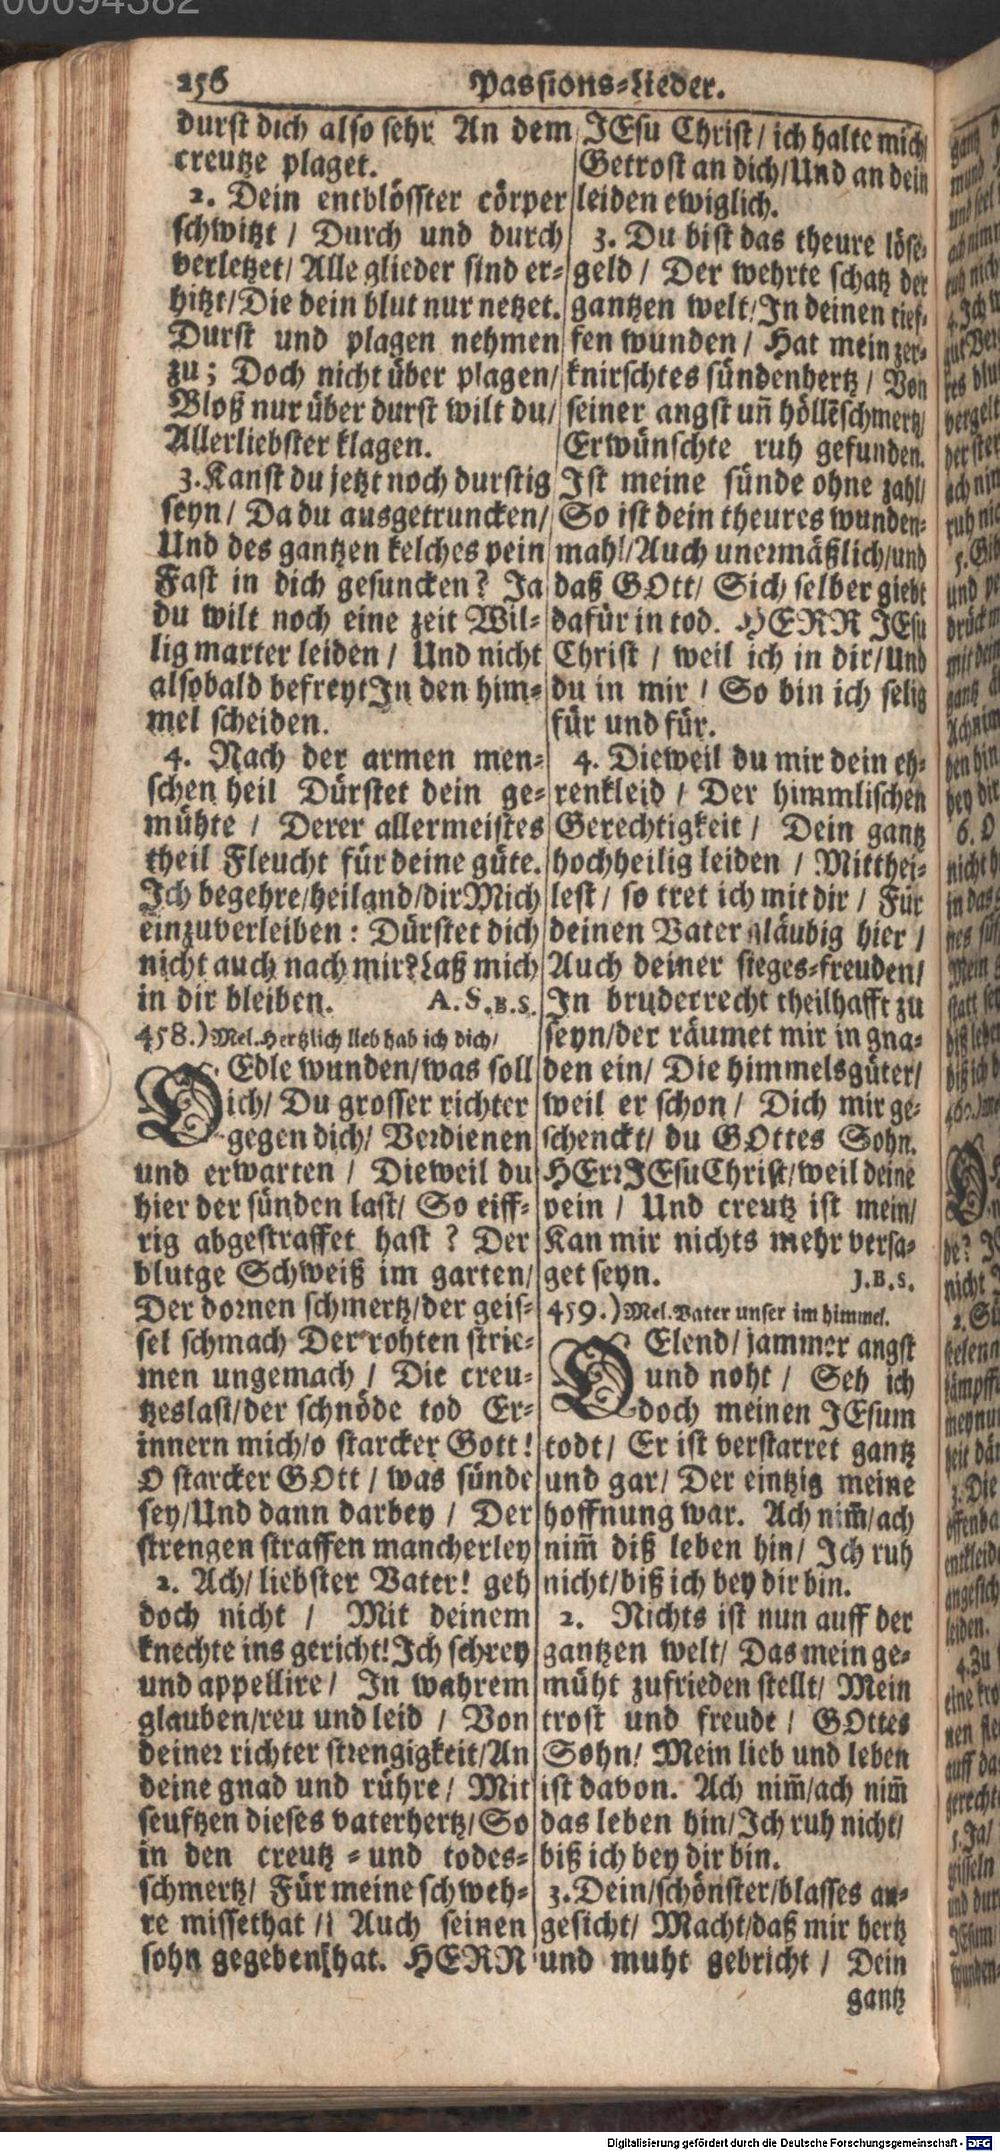 00094382
256 Passions-Lieder.
durst dich also sehr An dem
creutze plaget.
2. Dein entblösster cörper
schwitzt / Durch und durch
verletzet / Alle glieder sind er-
hitzt / Die dein blut nur netzet.
Durst und plagen nehmen
zu; Doch nicht über plagen /
Bloß nur über durst wilt du /
Allerliebster klagen.
3. Kanst du jetzt noch durstig
seyn / Da du ausgetruncken /
Und des gantzen kelches pein
Fast in dich gesuncken? Ja
du wilt noch eine zeit Wil-
lig marter leiden / Und nicht
alsobald befreyt In den him-
mel scheiden.
4. Nach der armen men-
schen heil Dürstet dein ge-
mühte / Derer allermeistes
theil Fleucht für deine güte.
Ich begehre / heiland / dir Mich
einzuverleiben: Dürstet dich
nicht auch nach mir? Laß mich
in dir bleiben. A. S. B. S.
458.) Mel. Hertzlich lieb hab ich dich /
O Edle wunden / was soll
ich / Du grosser richter
gegen dich / Verdienen
und erwarten / Dieweil du
hier der sünden last / So eiff-
rig abgestraffet hast? Der
blutge Schweiß im garten /
Der dornen schmertz / der geis-
sel schmach Der rohten strie-
men ungemach / Die creu-
tzeslast / der schnöde tod Er-
innern mich / o starcker Gott!
O starcker GOtt / was sünde
sey / Und dann darbey / Der
strengen straffen mancherley
2. Ach / liebster Vater! geh
doch nicht / Mit deinem
knechte ins gericht! Ich schrey
und appellire / In wahrem
glauben / reu und leid / Von
deiner richter strengigkeit / An
deine gnad und rühre / Mit
seufftzen dieses vaterhertz / So
in den creutz- und todes-
schmertz / Für meine schweh-
re missethat / Auch seinen
sohn gegeben hat. HERR
JEsu Christ / ich halte mich /
Getrost an dich / Und an dein
leiden ewiglich.
3. Du bist das theure löse-
geld / Der wehrte schatz der
gantzen welt / In deinen tief-
fen wunden / Hat mein zer-
knirschtes sündenhertz / Von
seiner angst uñ höllẽschmertz /
Erwünschte ruh gefunden.
Ist meine sünde ohne zahl /
So ist dein theures wunden-
mahl / Auch unermäßlich / und
daß GOtt / Sich selber giebt
dafür in tod. HERR JEsu
Christ / weil ich in dir / Und
du in mir / So bin ich selig
für und für.
4. Dieweil du mir dein eh-
renkleid / Der himmlischen
Gerechtigkeit / Dein gantz
hochheilig leiden / Mitthei-
lest / so tret ich mit dir / Für
deinen Vater gläubig hier /
Auch deiner sieges-freuden /
In bruderrecht theilhafft zu
seyn / der räumet mir in gna-
den ein / Die himmelsgüter /
weil er schon / Dich mir ge-
schenckt / du GOttes Sohn.
HErr JEsu Christ / weil deine
pein / Und creutz ist mein /
Kan mir nichts mehr versa-
get seyn. J. B. S.
459.) Mel. Vater unser im himmel.
O Elend / jammer angst
und noht / Seh ich
doch meinen JEsum
todt / Er ist verstarret gantz
und gar / Der eintzig meine
hoffnung war. Ach nim̃ / ach
nim̃ diß leben hin / Ich ruh
nicht / biß ich bey dir bin.
2. Nichts ist nun auff der
gantzen welt / Das mein ge-
müht zufrieden stellt / Mein
trost und freude / GOttes
Sohn / Mein lieb und leben
ist davon. Ach nim̃ / ach nim̃
das leben hin / Ich ruh nicht /
biß ich bey dir bin.
3. Dein / schönster / blasses an-
gesicht / Macht / daß mir hertz
und muht gebricht / Dein
gantz
Digitalisierung gefördert durch die Deutsche Forschungsgemeinschaft - DFG